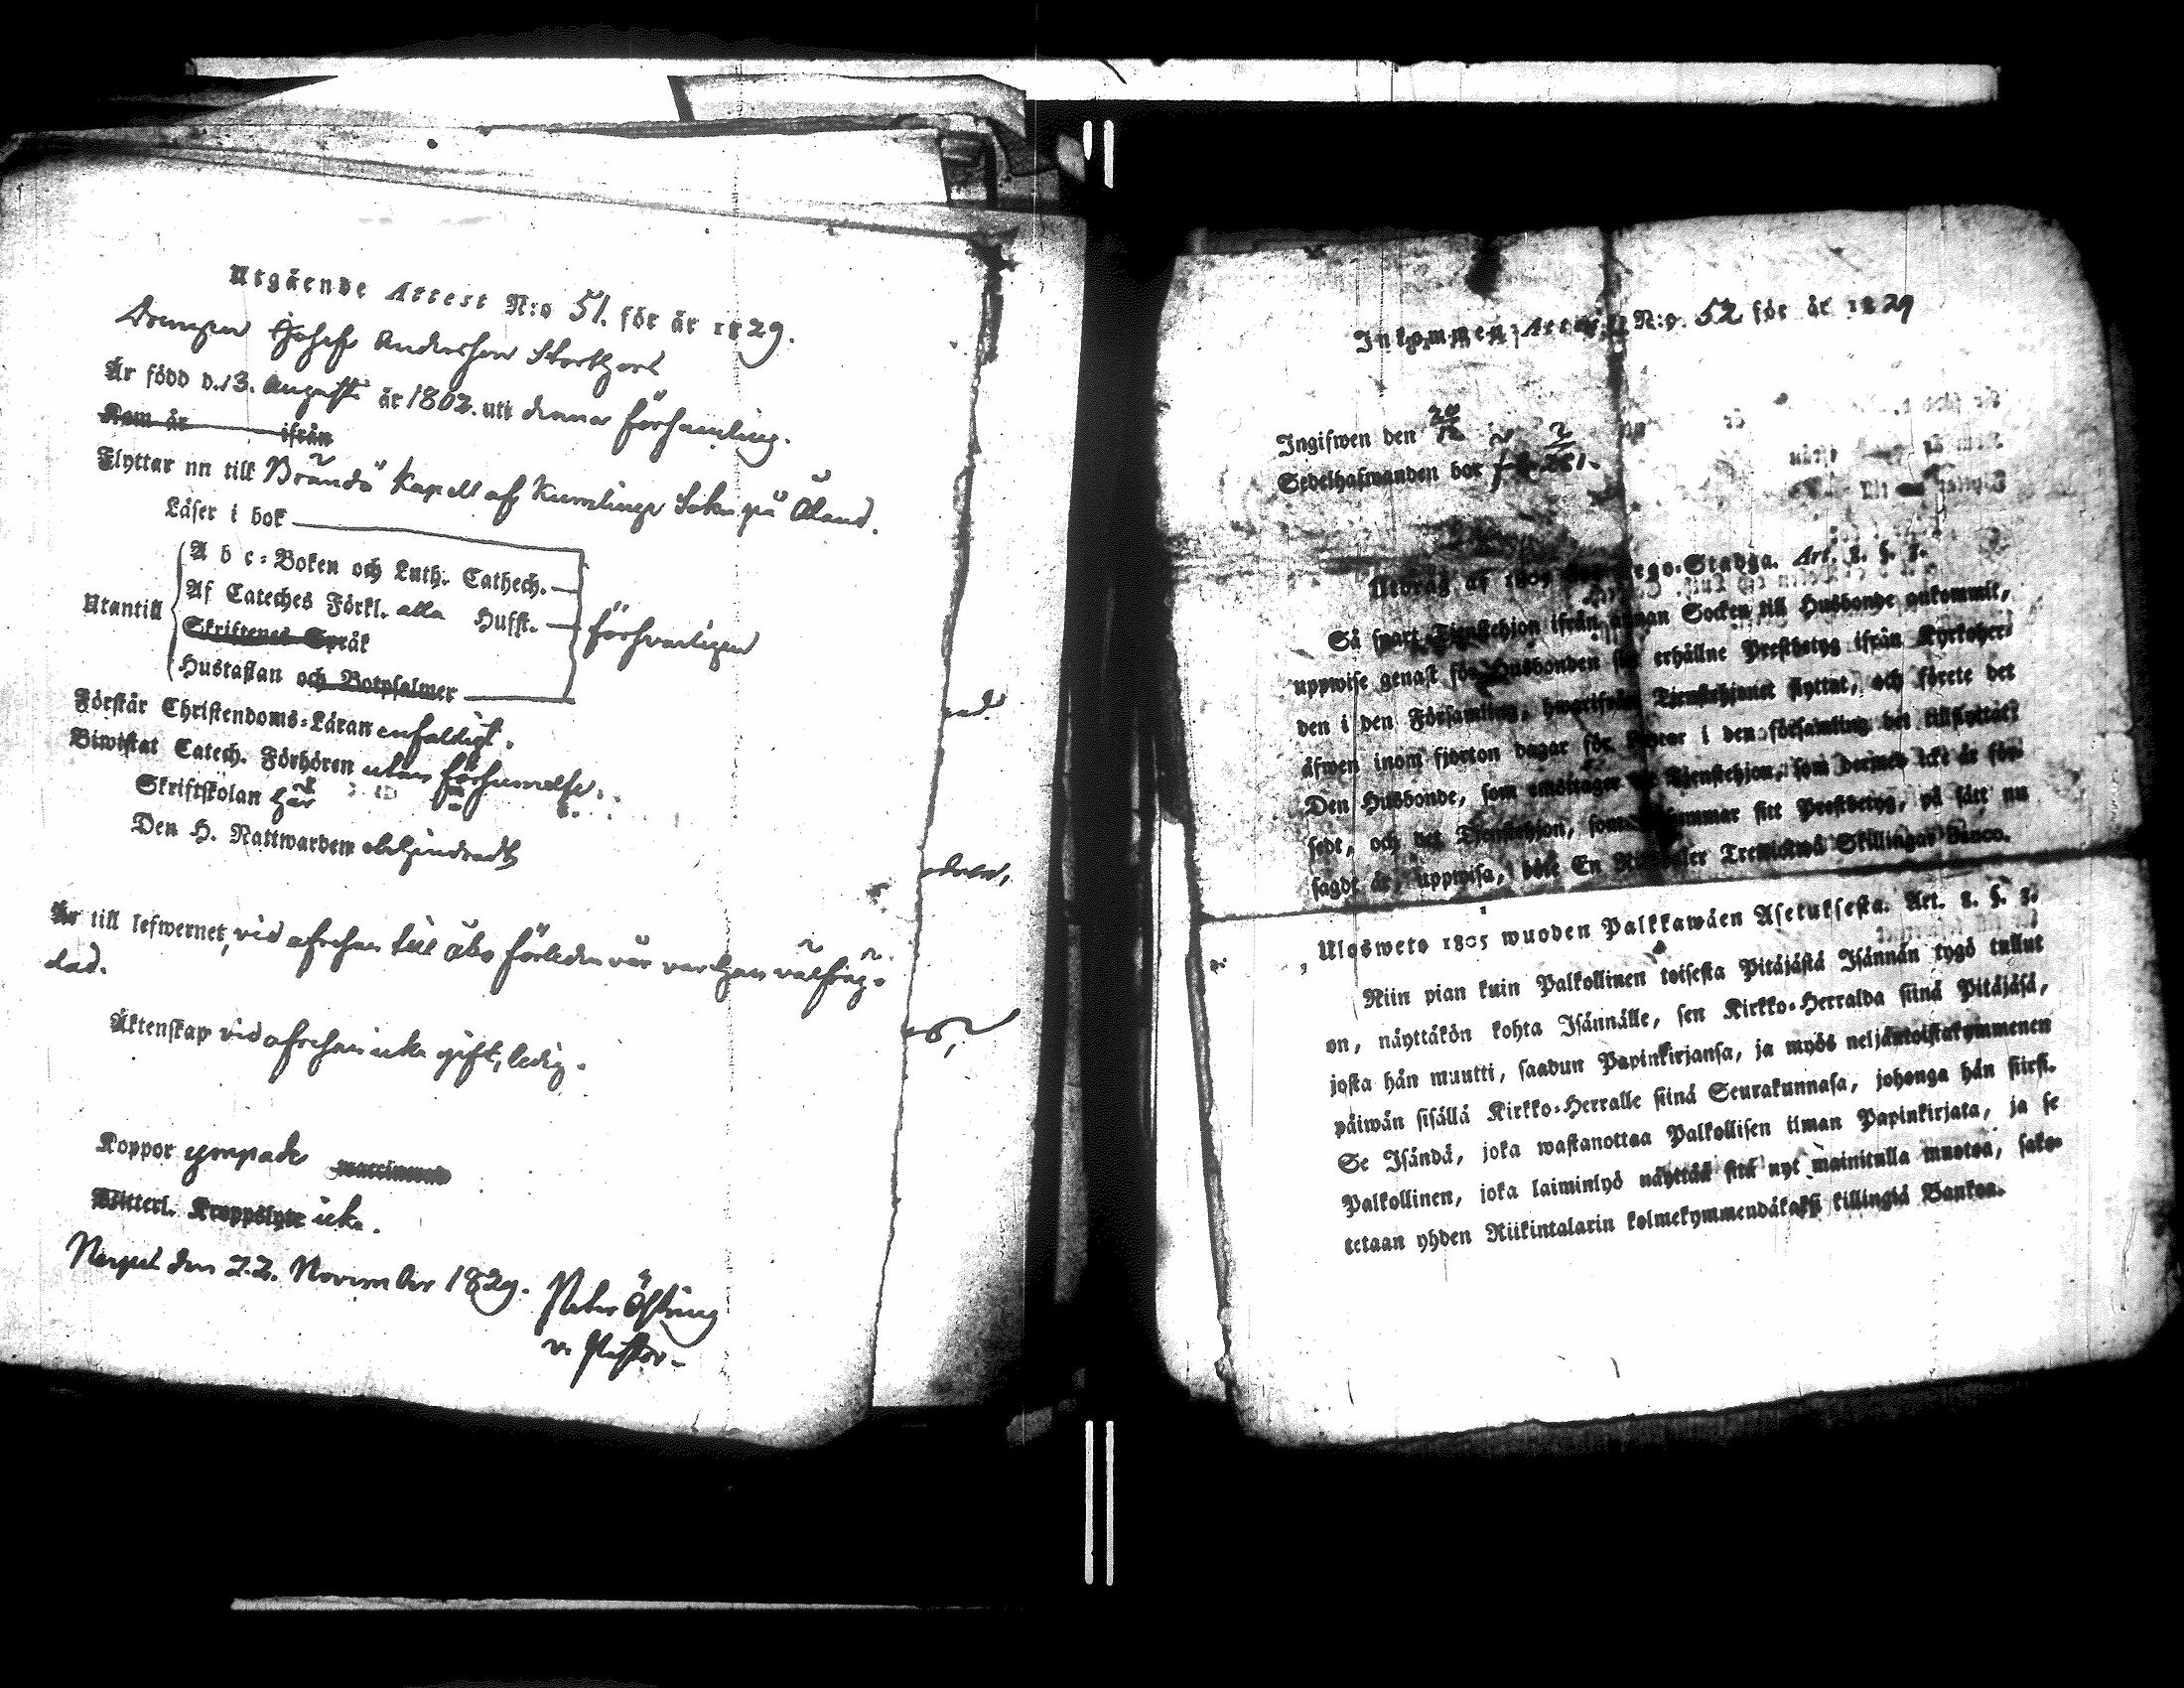 Utgående Attest N:o 51. för år 1829.
Drengen Josef Andersson Storthors
Är född d. 13. Augusti år 1802. uti denna församling.
Kom år ifrån
Flyttar nu till Brändö Kapell af Kumlinge Sokn på Åland.
Läser i bok
A b c-Boken och Luth. Cathech.
Af Cateches Förkl. alla Hufst.
Utantill försvarligen
Skriftenes Språk
Hustaflan och Botpsalmer
Förstår Christendoms-Läran enfaldigt.
Biwistat Catech. Förhören utan försumelse.
Skriftskolan här
Den H. Nattwarden obehindradt
Är till lefwernet, vid afresan till Åbo förleden vår var han välfräg-
dad.
Äktenskap vid afresan icke gift, ledig.
Koppor ympade vaccinerad
Witterl. Kroppslyte icke.
Nerpes den 22. November 1829. Peter Östring
v. Pastor.
Inkommen Attest N:o. 52 för år 1829
Ingifwen den 20/12
Sedelhafwanden bor
Utdrag af 1805 års Lego-Stadga. Art. 2. §. 3.
Så snart Tjenstehjon ifrån annan Socken till Husbonde ankommit,
uppwise genast för Husbonden sitt erhållne Prestbetyg ifrån Kyrkoher-
den i den Församling, hwarifrån Tjenstehjonet flyttat, och förete det
äfwen inom fjorton dagar för Pastor i den församling det tillflyttat.
Den Husbonde, som emottager ett Tjenstehjon, som dermed icke är för-
sedt, och det Tjenstehjon, som försummar sitt Prestbetyg, på sätt nu
sagdt är, uppwisa, böte En Riksdaler Trettiotwå Skillingar Banco.
Ulosweto 1805 wuoden Palkkawäen Asetuksesta. Art. 2. §. 3.
Niin pian kuin Palkollinen toisesta Pitäjästä Isännän tygö tullut
on, näyttäkön kohta Isännälle, sen Kirkko-Herralda siinä Pitäjäsä,
josta hän muutti, saadun Papinkirjansa, ja myös neljäntoistakymmenen
päiwän sisällä Kirkko-Herralle siinä Seurakunnasa, johonga hän siirst.
Se Isändä, joka wastanottaa Palkollisen ilman Papinkirjata, ja se
Palkollinen, joka laiminlyö näyttää sitä nyt mainitulla muotoa, sako-
tetaan yhden Riikintalarin kolmekymmendäkaksi killingiä Bankoa.